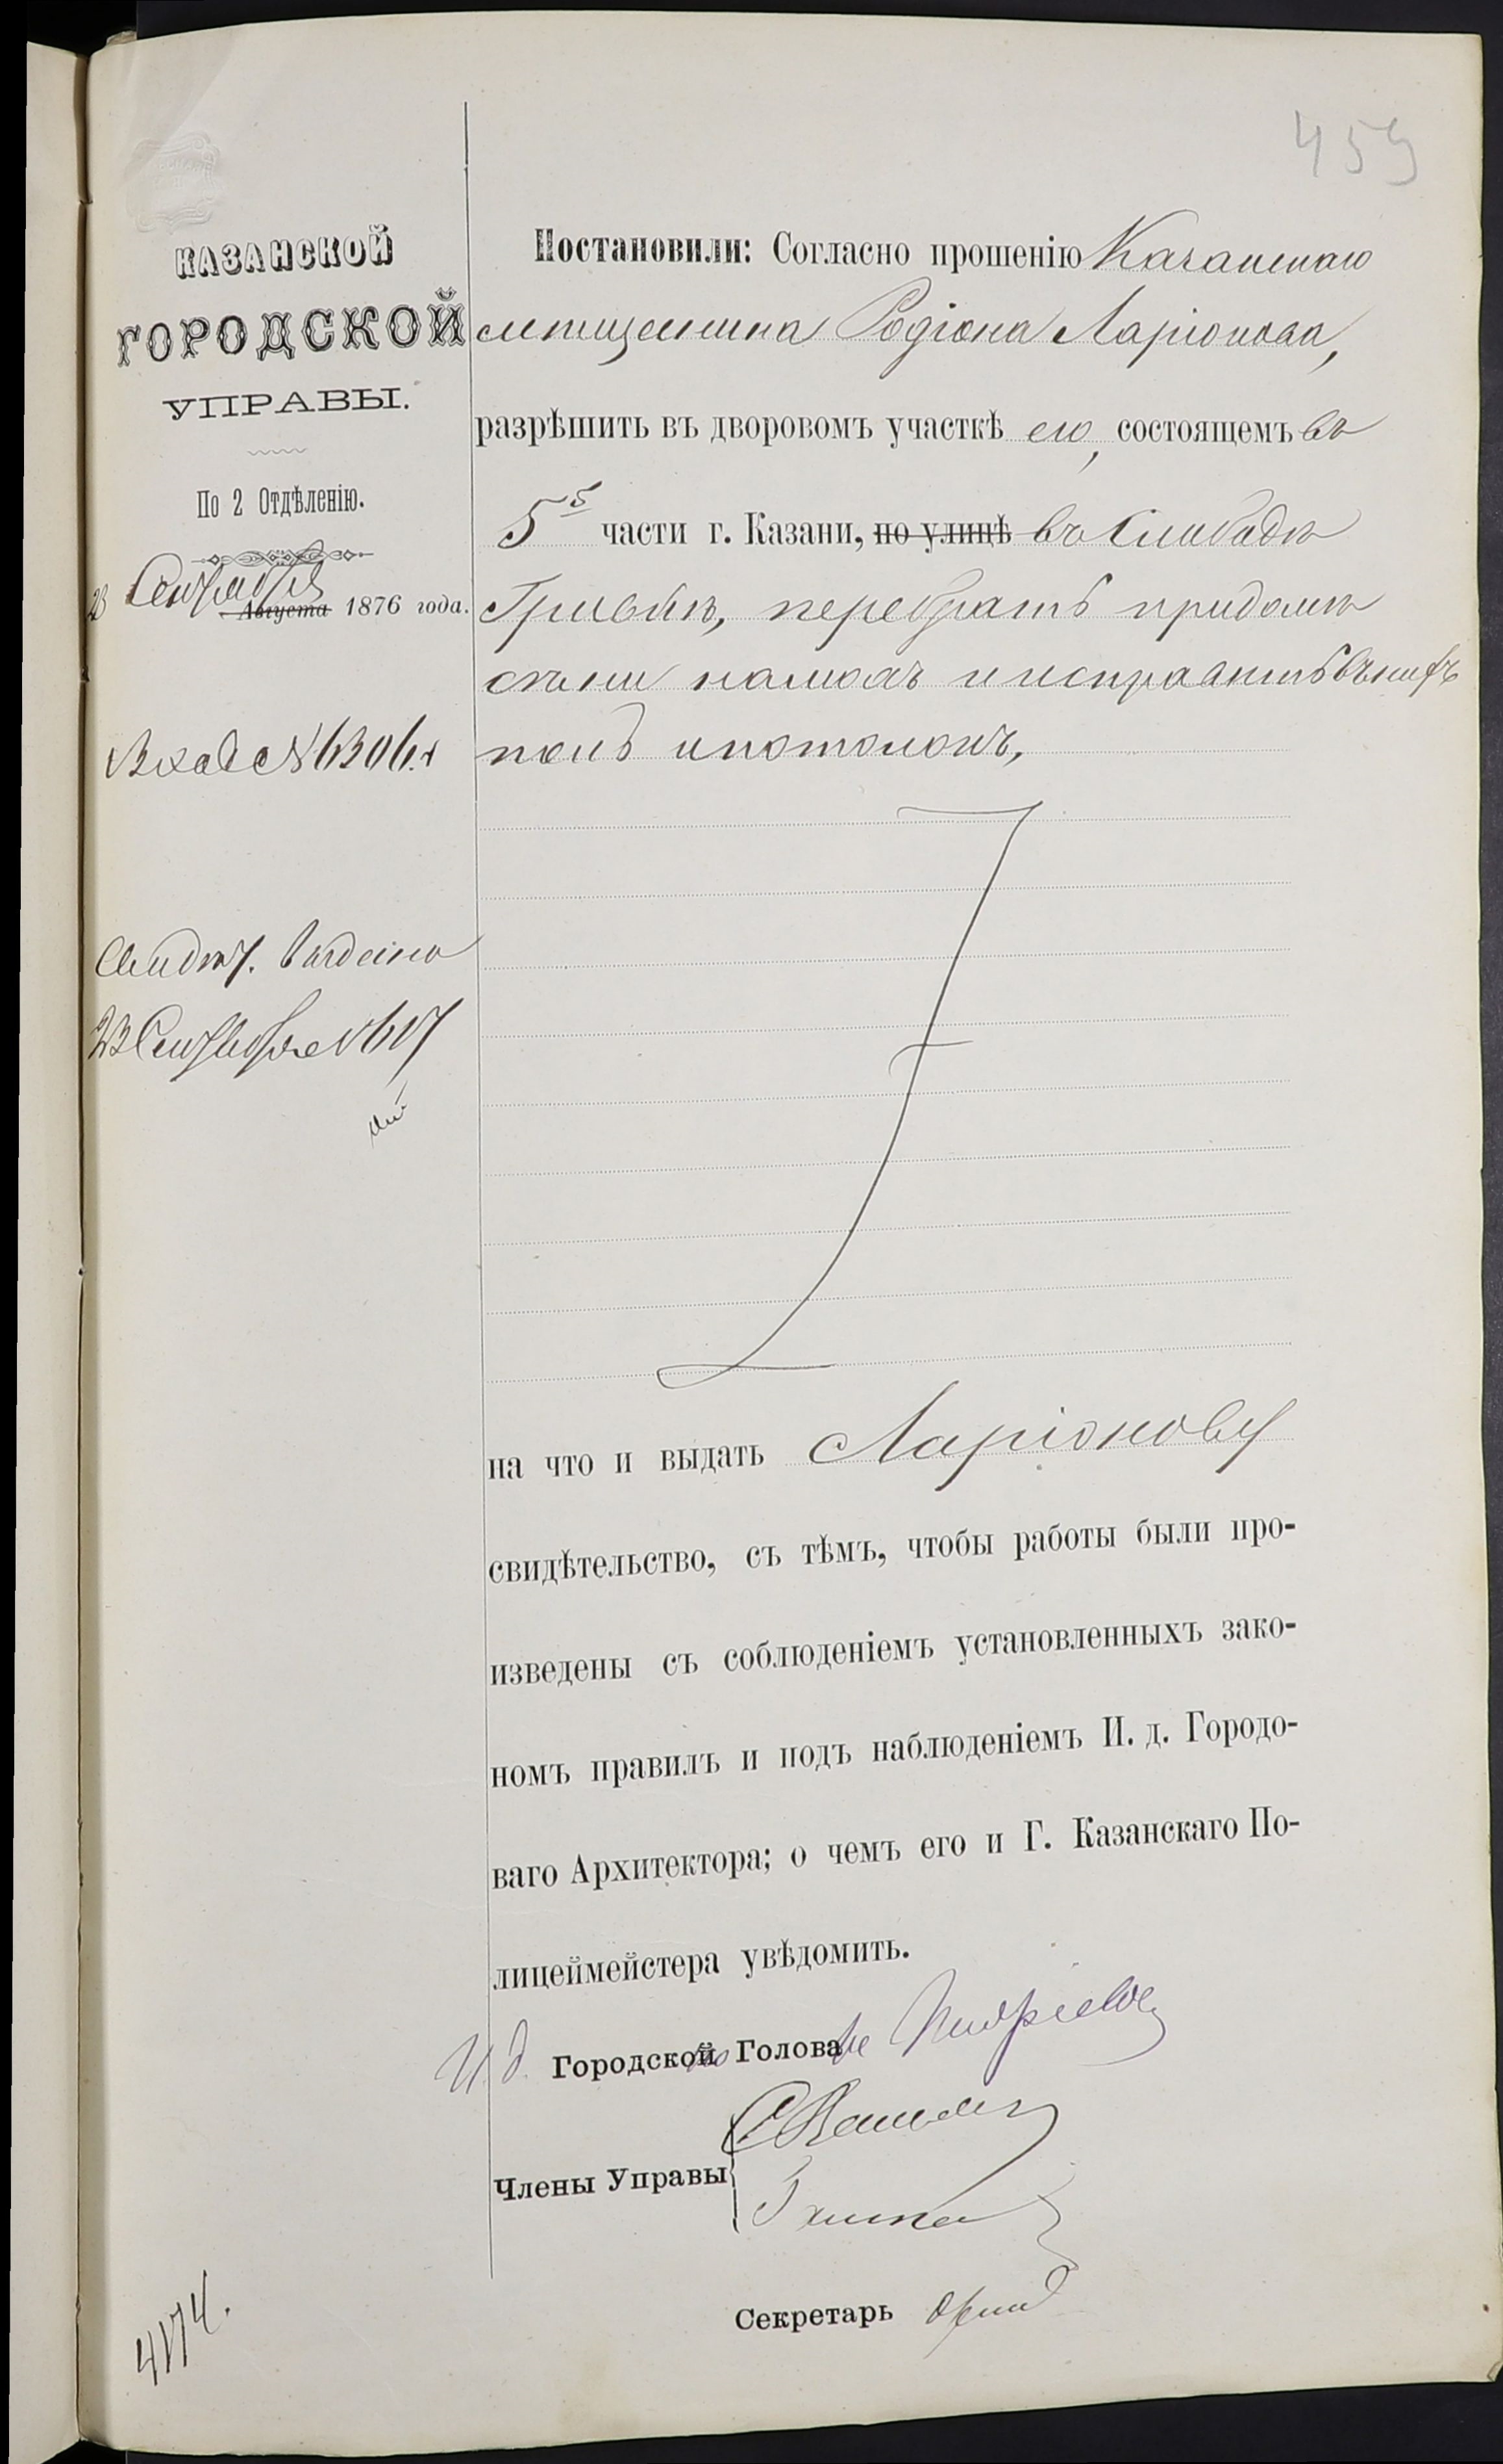 459
КАЗАНСКОЙ
ГОРОДСКОЙ
УПРАВЫ.
По 2 Отдѣленію.
23 Сентября
Августа 1876 года.
Вход №6306.
Свидѣт. выдано
23 Сентября №
4174.
Постановили: Согласно прошенію Казанскаго
мѣщанина Родіона Ларіонова,
разрѣшить въ дворовомъ участкѣ его, состоящемъ въ
5й части г. Казани, по улицѣ въ Слободѣ
Гривкѣ, перебрать при домѣ
сѣни на мохъ и исправить въ нихъ
полъ и потолокъ,
на что и выдать Ларіонову
свидѣтельство, съ тѣмъ, чтобы работы были про-
изведены съ соблюденіемъ установленныхъ зако-
номъ правилъ и подъ наблюденіемъ И. д. Городо-
ваго Архитектора; о чемъ его и Г. Казанскаго По-
лицеймейстера увѣдомить.
И. д. Городской Голова
Члены Управы
Секретарь